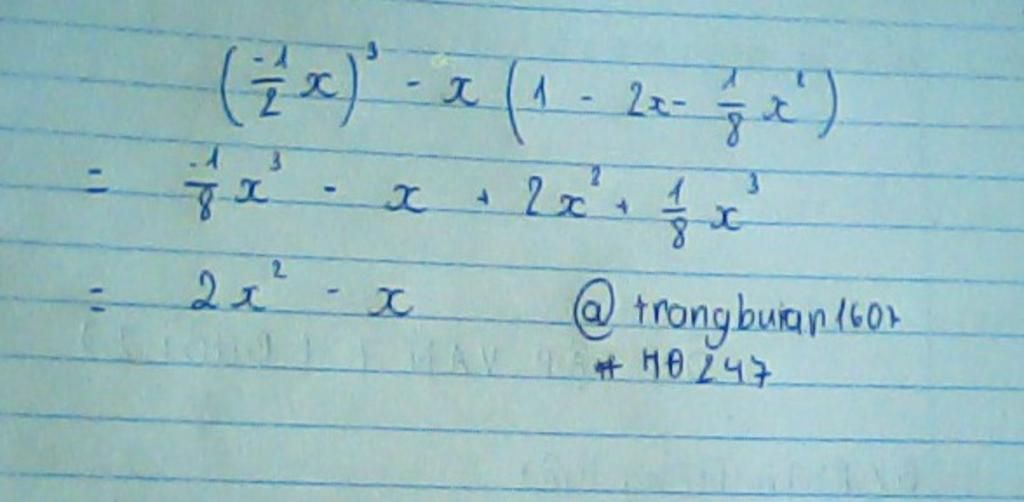 (-1/2 x)³ - x (1 - 2x - 1/8 x²)
= -1/8 x³ - x + 2x² + 1/8 x³
= 2x² - x
@trangbuian1607
# H247